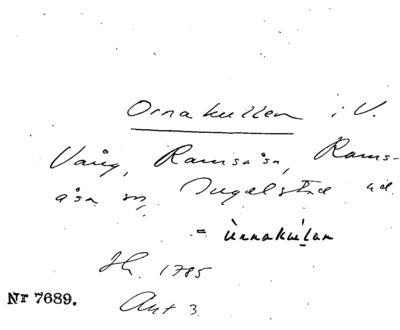 Ornakullen i V.
Vång, Ramsåsa, Rams-
åsa sn, Ingelstad hd.
= ùrnakùlan
Jh. 1785
Ant 3
Nr 7689.